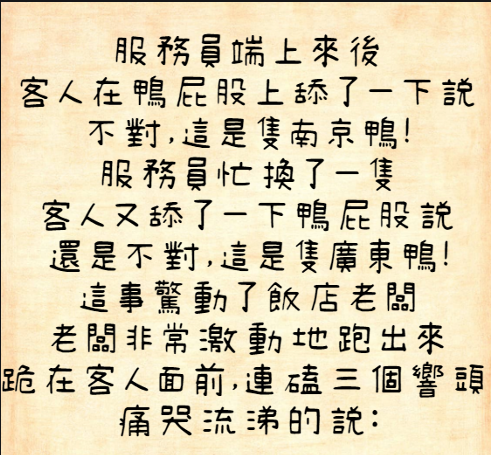 服務員端上來後
客人在鴨屁股上舔了一下說
不對,這是隻南京鴨!
服務員忙換了一隻
客人又舔了一下鴨屁股說
還是不對,這是隻廣東鴨!
這事驚動了飯店老闆
老闆非常激動地跑出來
跪在客人面前,連磕三個響頭
痛哭流涕的說: